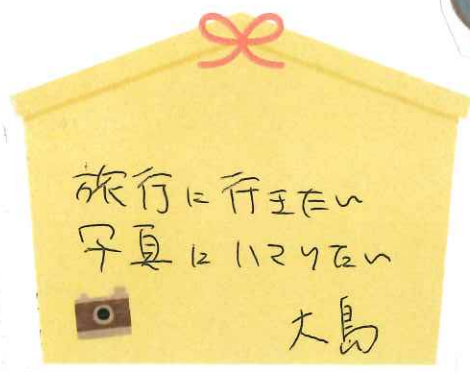 旅行に行きたい
写真にハマりたい
大島